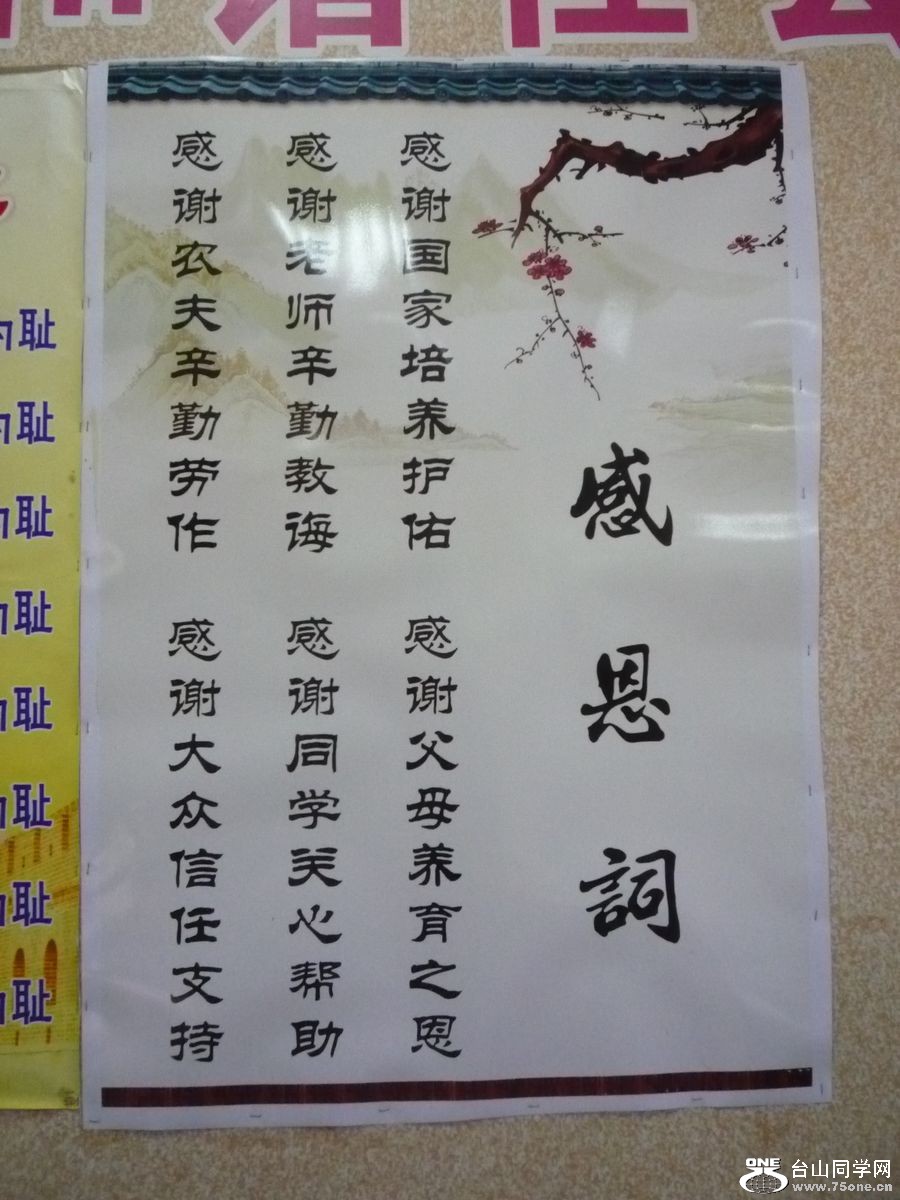 感恩詞
感谢国家培养护佑
感谢父母养育之恩
感谢老师辛勤教诲
感谢同学关心帮助
感谢农夫辛勤劳作
感谢大众信任支持
耻
耻
耻
耻
耻
耻
耻
耻
ONE 台山同学网
www.75one.cn